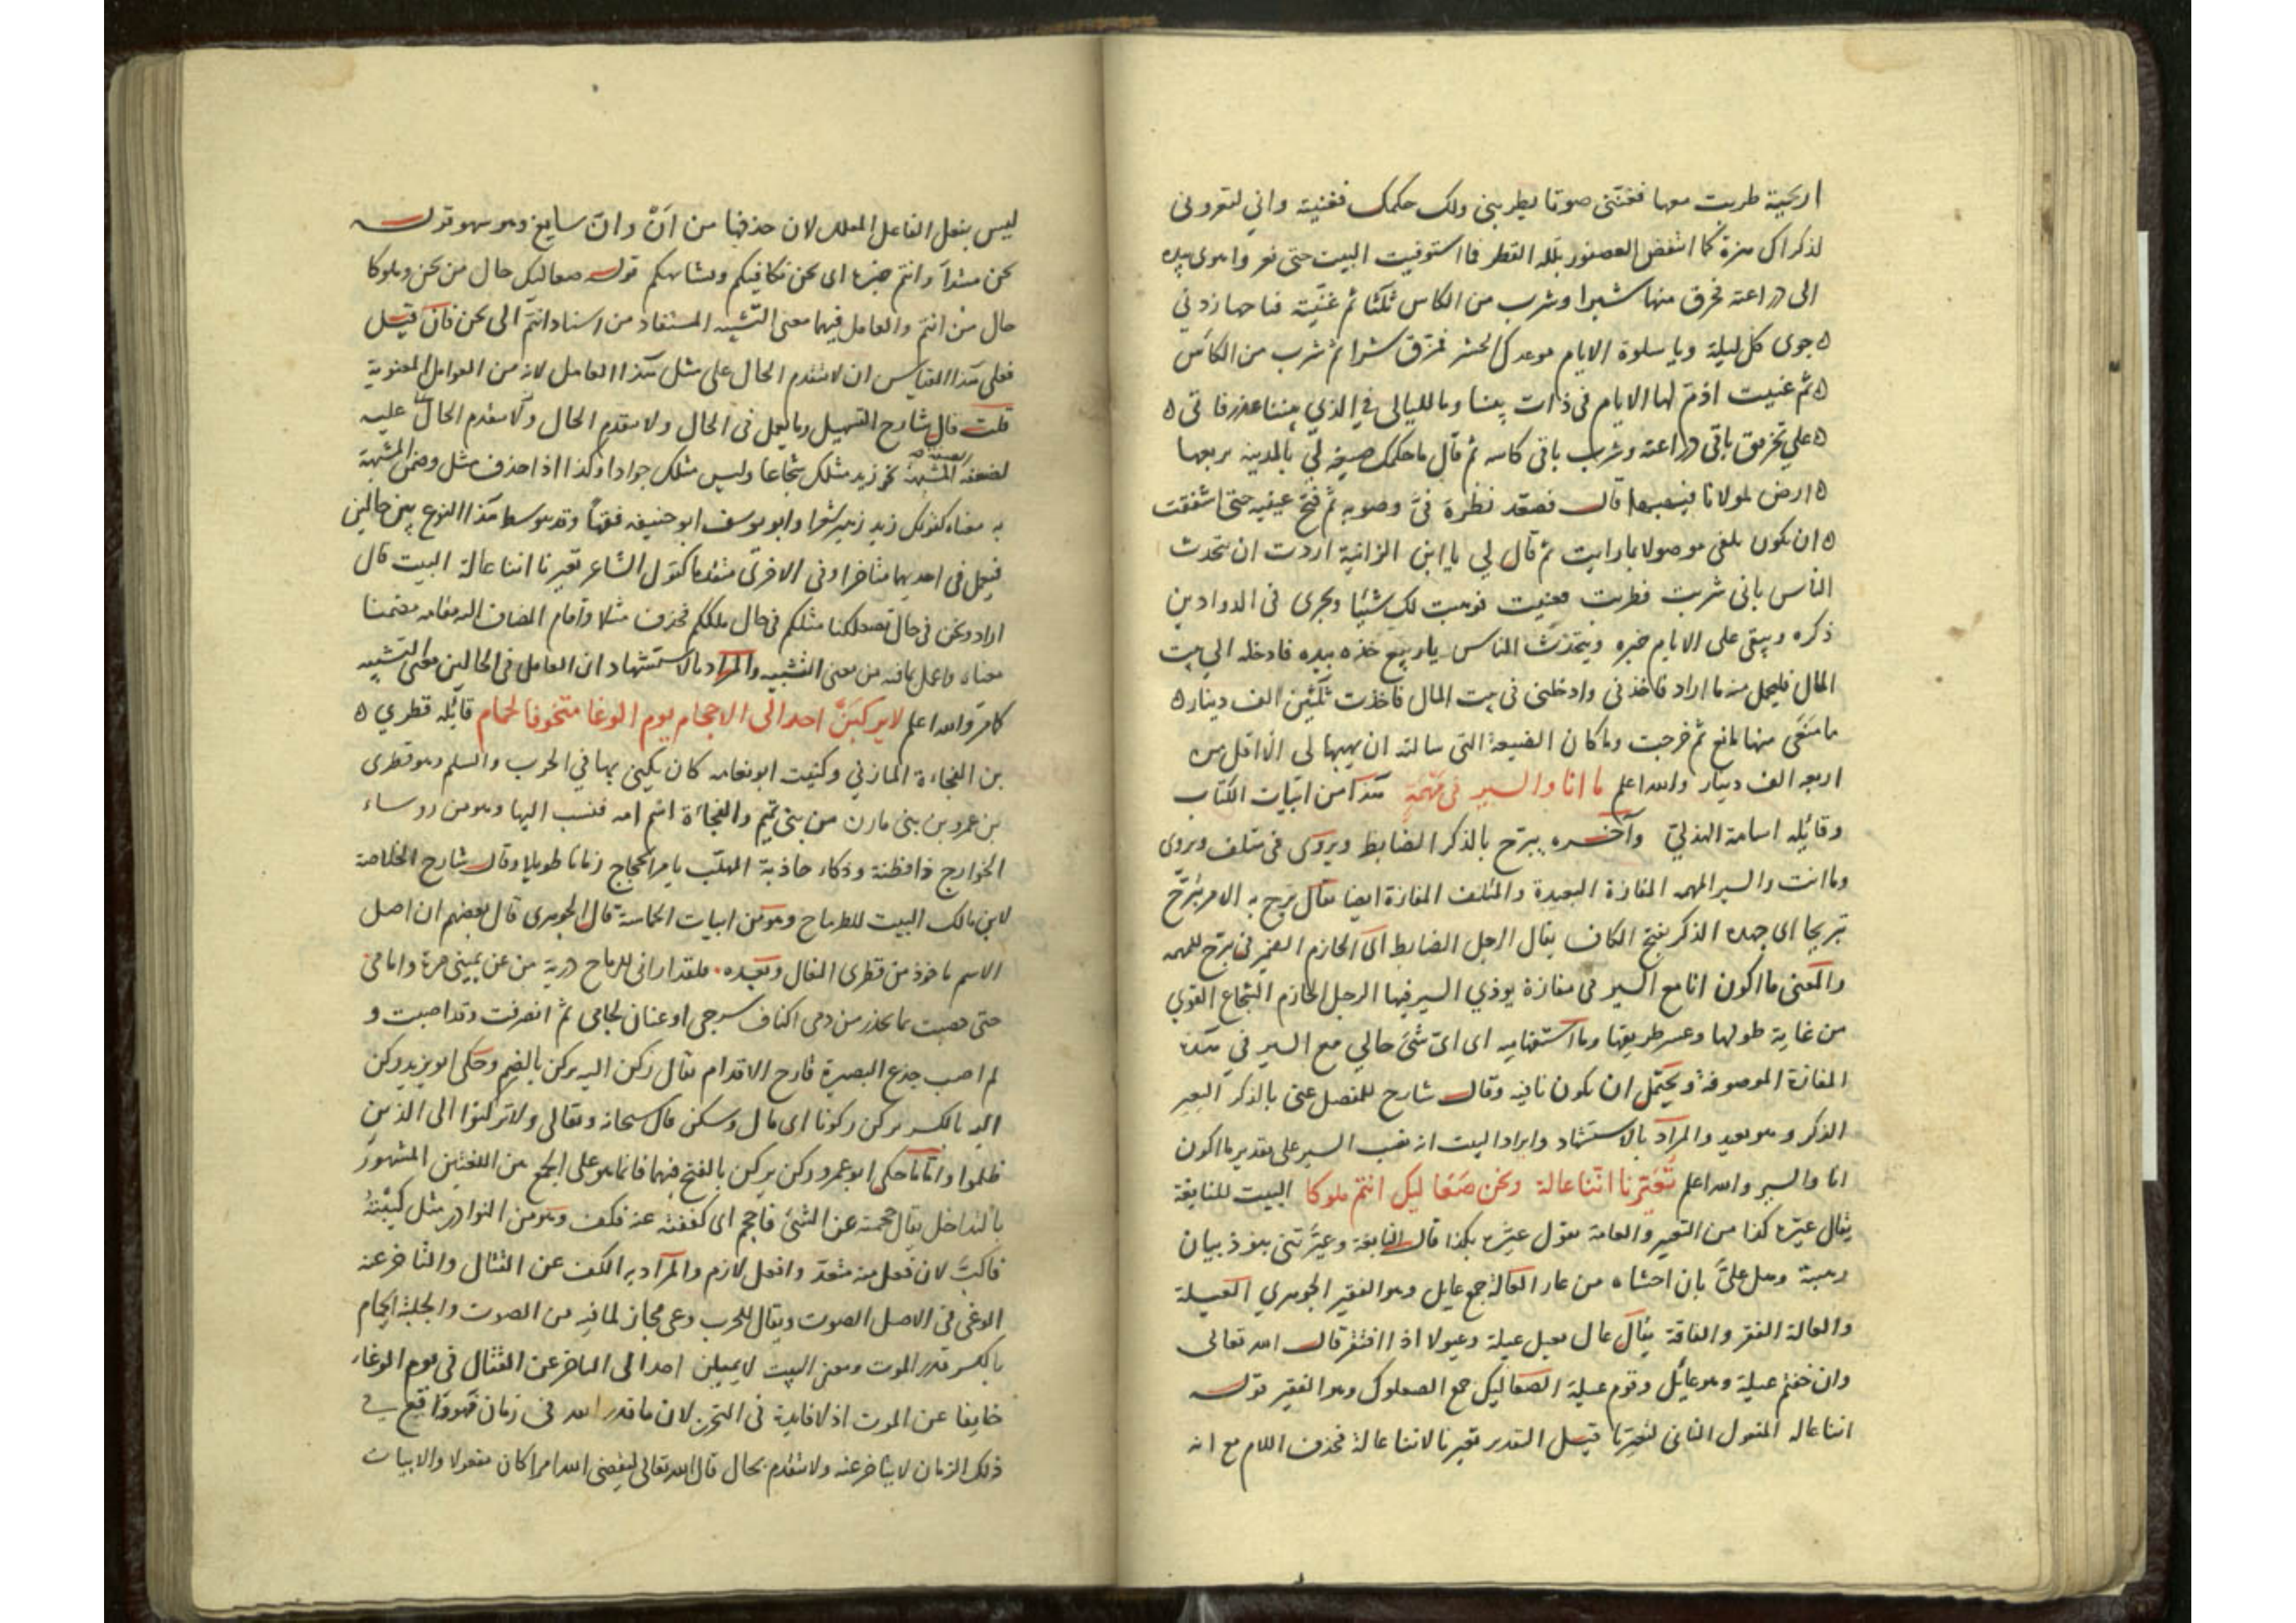 اريحية طربت معها فغنني صوتا يطربني ولك حكمك فغنيته واني لتعروني
لذكراك هزة كما انتفض العصفور بلله القطر فما استوفيت البيت حتى نعر واهوى بيده
الى دراعته فخرق منها شبرا وشرب من الكاس ثلثا ثم غنيت فيا حبها زدني
جوى كل ليلة ويا سلوة الايام موعدك الحشر فمزق شبرا ثم شرب من الكاس
ثم غنيت اذم لها الايام في ذات بيننا وما لليالي في الذي بيننا عذر فاتى
على تخريق باقي دراعته وشرب باقي كاسه ثم قال ما حكمك صيغه لي بالمدينه بربعها
ارض لمولانا فيهبها قال فصعد نظره في وصوبه ثم فتح عينيه حتى اشفقت
ان يكون بلغني موصولا بما رايت ثم قال لي يا ابن الزانية اردت ان تتحدث
الناس باني شربت فطربت فغنيت فوهبت لك شيئا ويجري في الدواوين
ذكره ويبقى على الايام خبره ويتحدث الناس يا ربيع خذه بيده فادخله الى بيت
المال فليحمل منه ما اراد فاخذني وادخلني في بيت المال فاخذت ثلثين الف دينار
ما منعني منها مانع ثم خرجت وما كان الضيعة التي سالته ان يهبها لي الا اقل من
اربعه الف دينار والله اعلم ما انا والسير في مهمه هذا من ابيات الكتاب
وقائله اسامة الهذلي وآخره يبرح بالذكر الضابط ويروى في متلف ويروى
وما انت والسير المهمه المفازة البعيدة والمتلف المفازة ايضا يقال برح به الامر يبرح
تبريحا اي جهده الذكر بفتح الكاف يقال الرجل الضابط اي الحازم الضمير في يبرح للمهمه
والمعنى ما اكون انا مع السير في مفازة يوذي السير فيها الرجل الحازم الشجاع القوي
من غاية طولها وعسر طريقها وما استفهاميه اي اي شئ حالي مع السير في هذه
المفازة الموصوفة ويحتمل ان يكون نافيه وقال شارح للمفصل عنى بالذكر البعير
الذكر وهو بعيد والمراد بالاستشهاد وايراد البيت انه نصب السير على تقدير ما اكون
انا والسير والله اعلم تعيرنا اننا عالة ونحن صعاليك انتم ملوكا البيت للنابغة
يقال عيره كذا من التعير والعامة تقول عيره بكذا قال النابغة وعيرتني بنو ذبيان
رهبته وهل علي بان اخشاه من عار العالة جمع عايل وهو الفقير الجوهري العيلة
والعالة الفقر والفاقة يقال عال يعيل عيلة وعيولا اذا افتقر قال الله تعالى
وان خفتم عيلة وهو عائل وقوم عيلة الصعاليك جمع الصعلوك وهو الفقير قوله
اننا عاله المفعول الثاني لتعيرنا قيل التقدير تعيرنا لاننا عالة فحذف اللام مع انه
ليس بفعل الفاعل المعلل لان حذفها من ان وان سايغ وهو سهو قوله
نحن مبتدا وانتم خبره اي نحن نكافيكم ونشابهكم قوله صعاليك حال من نحن وملوكا
حال من انتم والعامل فيهما معنى التشبيه المستفاد من اسناد انتم الى نحن فان قيل
فعلى هذا القياس ان لا يتقدم الحال على مثل هذا العامل لانه من العوامل المعنوية
قلت قال شارح التسهيل وما يعمل في الحال ولا يتقدم الحال ولا يتقدم الحال عليه
لضعفه المشبه نحو زيد مثلك شجاعا وليس مثلك جوادا وكذا اذا حذف مثل وضمن المشبه
به معناه كقولك زيد زهير شعرا وابو يوسف ابو حنيفه فقها وقد يتوسط هذا النوع بين حالين
فيعمل في احديهما متاخرا وفي الاخرى متقدما كقول الشاعر تعيرنا اننا عالة البيت قال
اراد ونحن في حال تصعلكنا مثلكم في حال ملككم فحذف مثلا واقام المضاف اليه مقامه مضمنا
معناه واعمل بما فيه من معنى التشبيه والمراد بالاستشهاد ان العامل في الحالين معنى التشبيه
كما مر والله اعلم لا يركبن احد الى الاحجام يوم الوغا متخوفا لحمام قائله قطري
بن الفجاءة المازني وكنيته ابو نعامه كان يكنى بها في الحرب والسلم وهو قطري
بن عمرو بن بني مازن من بني تميم والفجاءة اسم امه فنسب اليها وهو من روساء
الخوارج ذا فطنة وذكاء حاذبة المهلب بامر الحجاج زمانا طويلا وقال شارح الخلاصة
لابن مالك البيت للطرماح وهو من ابيات الحماسة قال الجوهري قال بعضهم ان اصل
الاسم ماخوذ من قطري النعال وبعده فلقد اراني للرماح درية من عن يميني مرة وامامي
حتى خضبت بما تحدر من دمي اكناف سرجي او عنان لجامي ثم انصرفت وقد اصبت و
لم اصب جذع البصيرة قارح الاقدام يقال ركن اليه يركن بالضم وحكى ابو زيد ركن
اليه بالكسر يركن ركونا اي مال وسكن قال سبحانه وتعالى ولا تركنوا الى الذين
ظلموا واما ما حكى ابو عمرو ركن يركن بالفتح فيهما فانما هو على الجمع من اللغتين المشهور
بالتداخل يقال حجمته عن الشئ فاحجم اي كففته عنه فكف وهو من النوادر مثل كببته
فاكب لان فعل منه متعد وافعل لازم والمراد به الكف عن القتال والتاخر عنه
الوغى في الاصل الصوت ويقال للحرب وغى مجاز لما فيه من الصوت والجلبة الحمام
بالكسر قدر الموت ومعنى البيت لا يميلن احد الى التاخر عن القتال في يوم الوغاء
خايفا عن الموت اذ لا فايدة في التحرز لان ما قدر الله في زمان فهو واقع في
ذلك الزمان لا يتاخر عنه ولا يتقدم بحال قال الله تعالى ليقضي الله امرا كان مفعولا والابيات